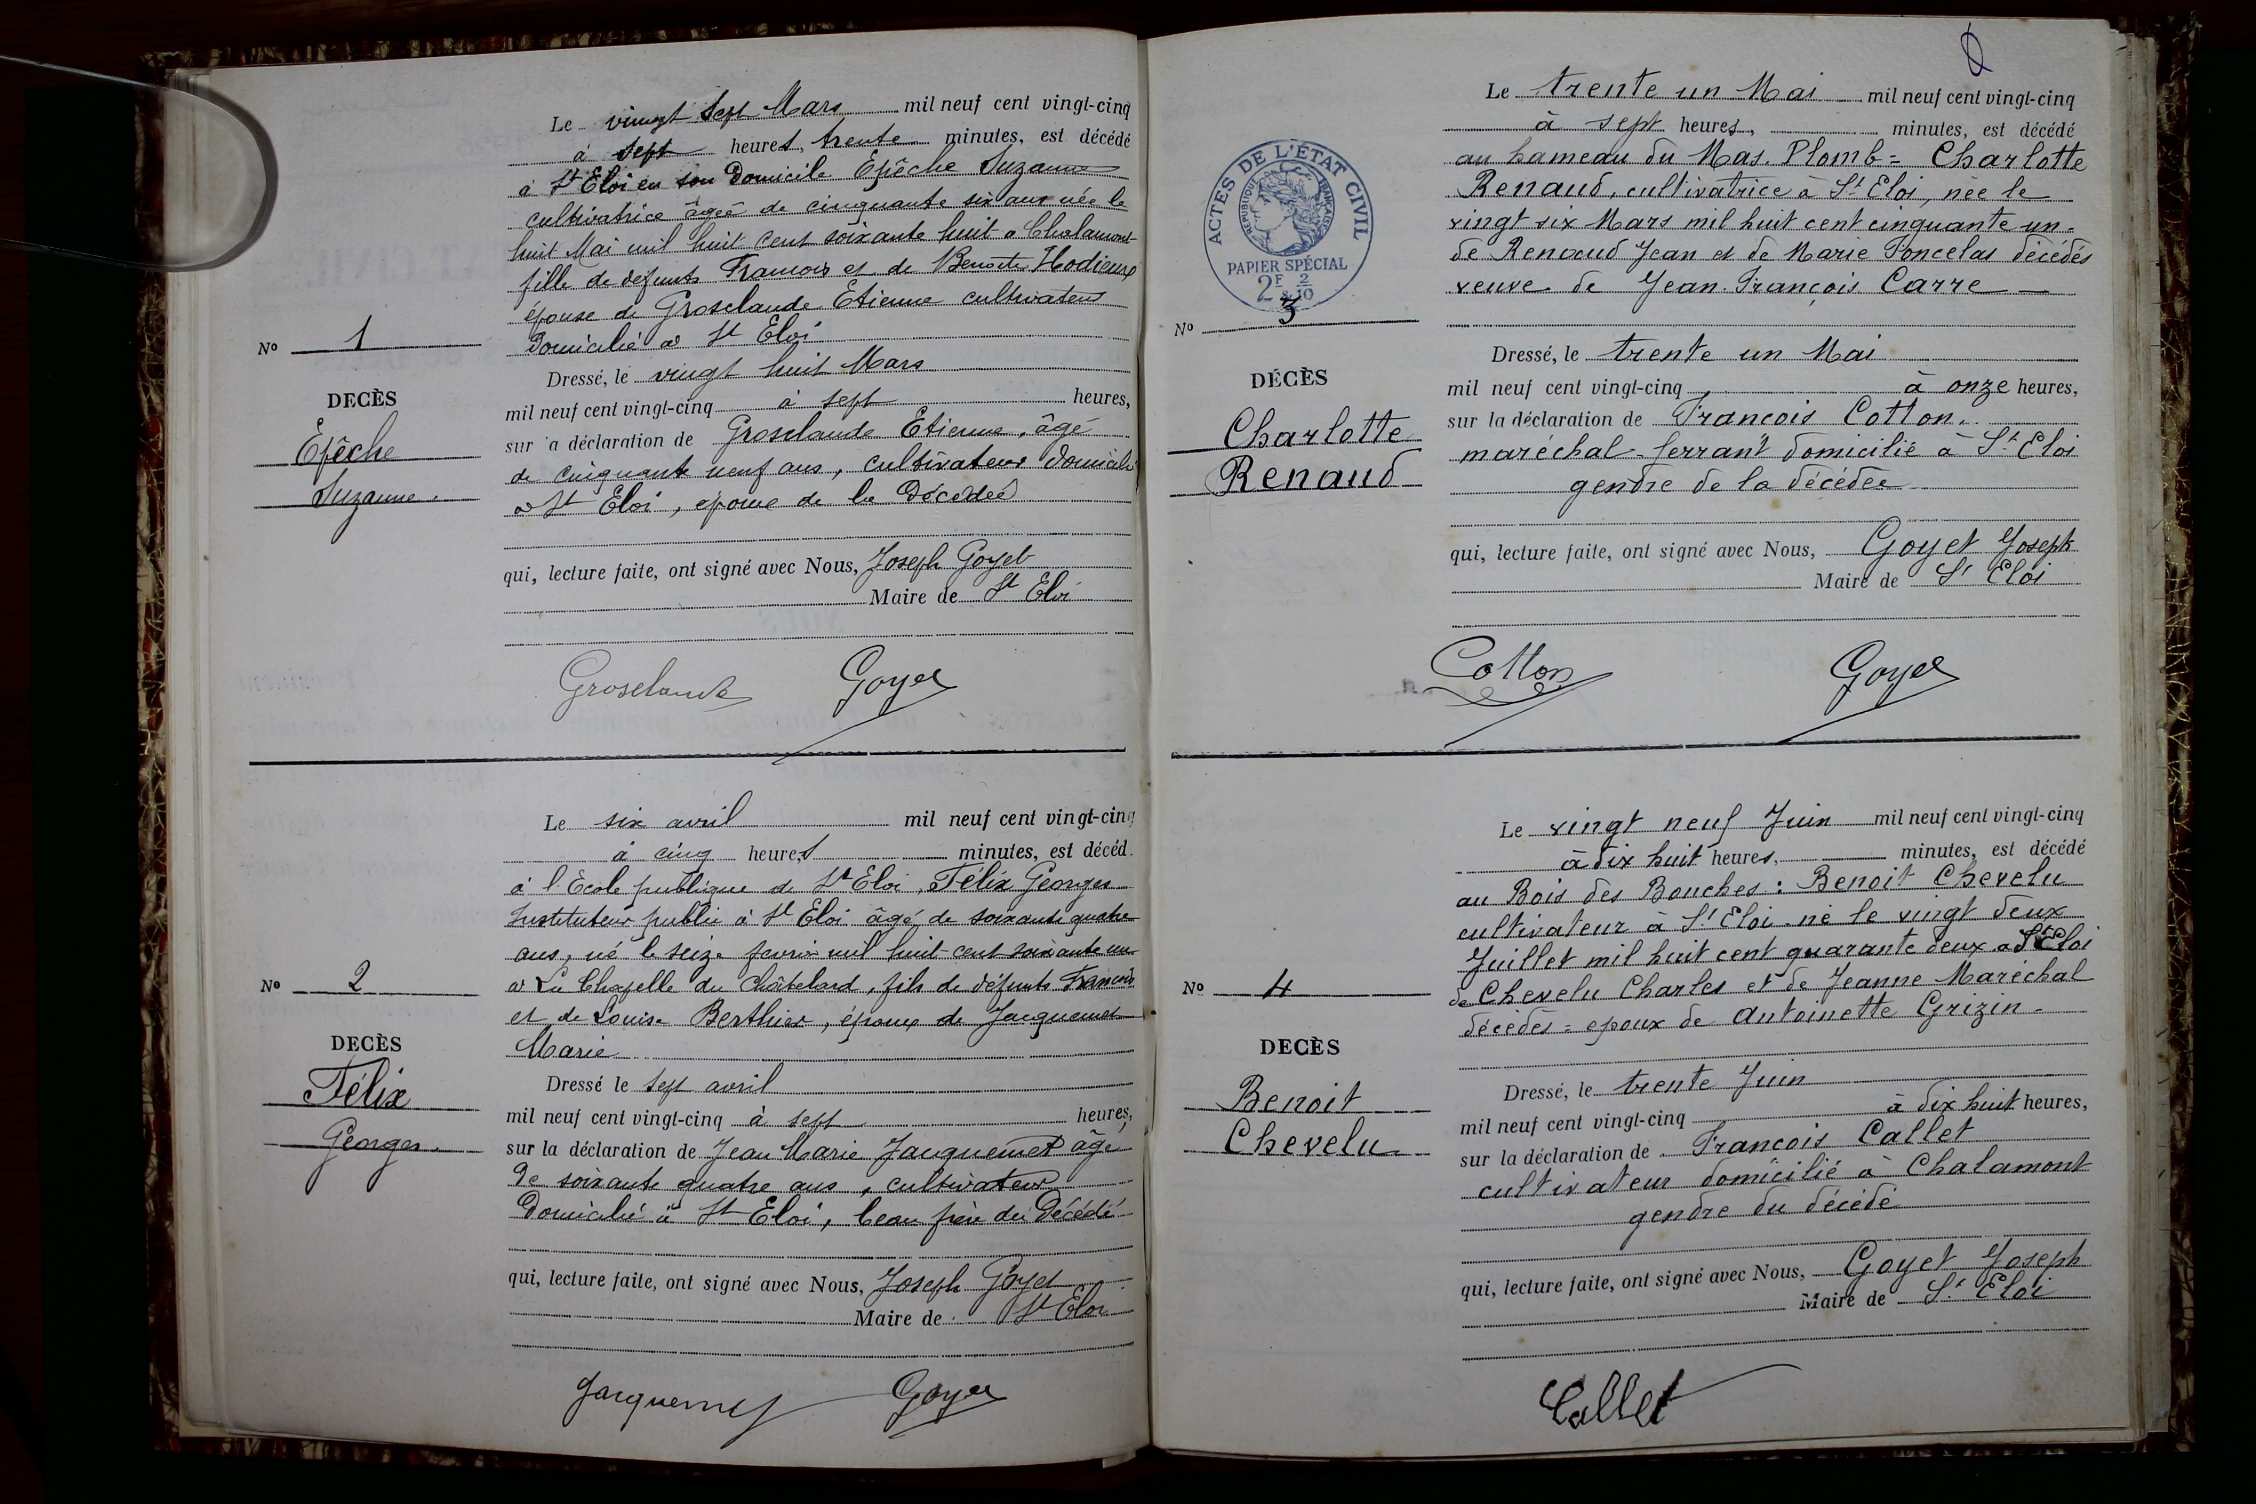 Le vingt sept Mars mil neuf cent vingt-cinq
à sept heures, trente minutes, est décédé
à St Eloi en son domicile Epêche Suzanne
cultivatrice âgée de cinquante six ans née le
huit Mai mil huit cent soixante huit a Chalamont
fille de defunts Francois et de Benoîte Hodieux
épouse de Groselaude Etienne cultivateur
domicilié a St Eloi
No 1
Dressé, le vingt huit Mars
DECÈS
mil neuf cent vingt-cinq à sept heures,
Epêche
sur a déclaration de Groselaude Etienne, âgé
Suzanne.
de cinquante neuf ans, cultivateur domicilié
a St Eloi, epoux de la décédée
qui, lecture faite, ont signé avec Nous, Joseph Goyet
Maire de St Eloi
Groselaude Goyet
Le six avril mil neuf cent vingt-cinq
à cinq heures minutes, est décéd.
à l'Ecole publique de St Eloi, Félix Georges
Instituteur public à St Eloi âgé de soixante quatre
ans, né le seize fevrier mil huit cent soixante un
a La Chapelle du Châtelard, fils de défunts Francois
et de Louise Berthier, époux de Jacquemet
Marie
No 2
DECÈS
Félix
Georges.
Dressé le sept avril
mil neuf cent vingt-cinq à sept heures,
sur la déclaration de Jean Marie Jacquemet âgé
de soixante quatre ans, cultivateur
domicilié à St Eloi, beau frère du décédé
qui, lecture faite, ont signé avec Nous, Joseph Goyet
Maire de St Eloi
Jacquemet Goyet
Le trente un Mai mil neuf cent vingt-cinq
à sept heures, minutes, est décédé
au hameau du Mas. Plomb = Charlotte
Renaud, cultivatrice à St Eloi, née le
vingt six Mars mil huit cent cinquante un =
de Renaud Jean et de Marie Poncelas décédés
veuve de Jean-François Carre —
ACTES DE L'ÉTAT CIVIL
RÉPUBLIQUE FRANÇAISE
PAPIER SPÉCIAL
2F 2/10
No 3
DÉCÈS
Charlotte
Renaud
Dressé, le trente un Mai
mil neuf cent vingt-cinq à onze heures,
sur la déclaration de François Cotton.
maréchal-ferrant domicilié à St Eloi
gendre de la décédée
qui, lecture faite, ont signé avec Nous, Goyet Joseph
Maire de St Eloi
Cotton Goyet
Le vingt neuf Juin mil neuf cent vingt-cinq
à dix huit heures, minutes, est décédé
au Bois des Bouches : Benoit Chevelu
cultivateur à St Eloi né le vingt deux
Juillet mil huit cent quarante deux a St Eloi
de Chevelu Charles et de Jeanne Maréchal
décédés = epoux de Antoinette Grizin -
No 4
DECÈS
Benoit
Chevelu
Dressé, le trente Juin
mil neuf cent vingt-cinq à dix huit heures,
sur la déclaration de François Callet
cultivateur domicilié à Chalamont
gendre du décédé
qui, lecture faite, ont signé avec Nous, Goyet Joseph
Maire de St Eloi
Callet